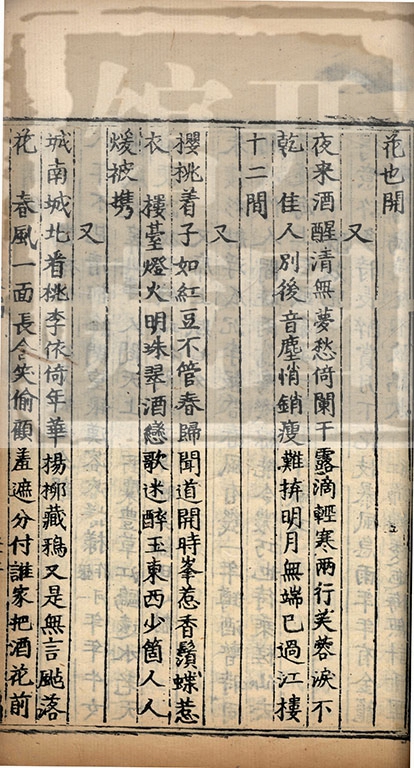 花也開
又
夜来酒醒清無夢愁倚闌干露滴輕寒兩行芙蓉淚不
乾　佳人別後音塵悄銷瘦難拚明月無端已過江樓
十二間
又
櫻桃着子如紅豆不管春歸聞道開時峯惹香鬚蝶惹
衣　樓臺燈火明珠翠酒戀歌迷醉玉東西少箇人人
煖被携
又
城南城北看桃李依倚年華楊柳藏鴉又是無言颭落
花　春風一面長含笑偷顧羞遮分付誰家把酒花前